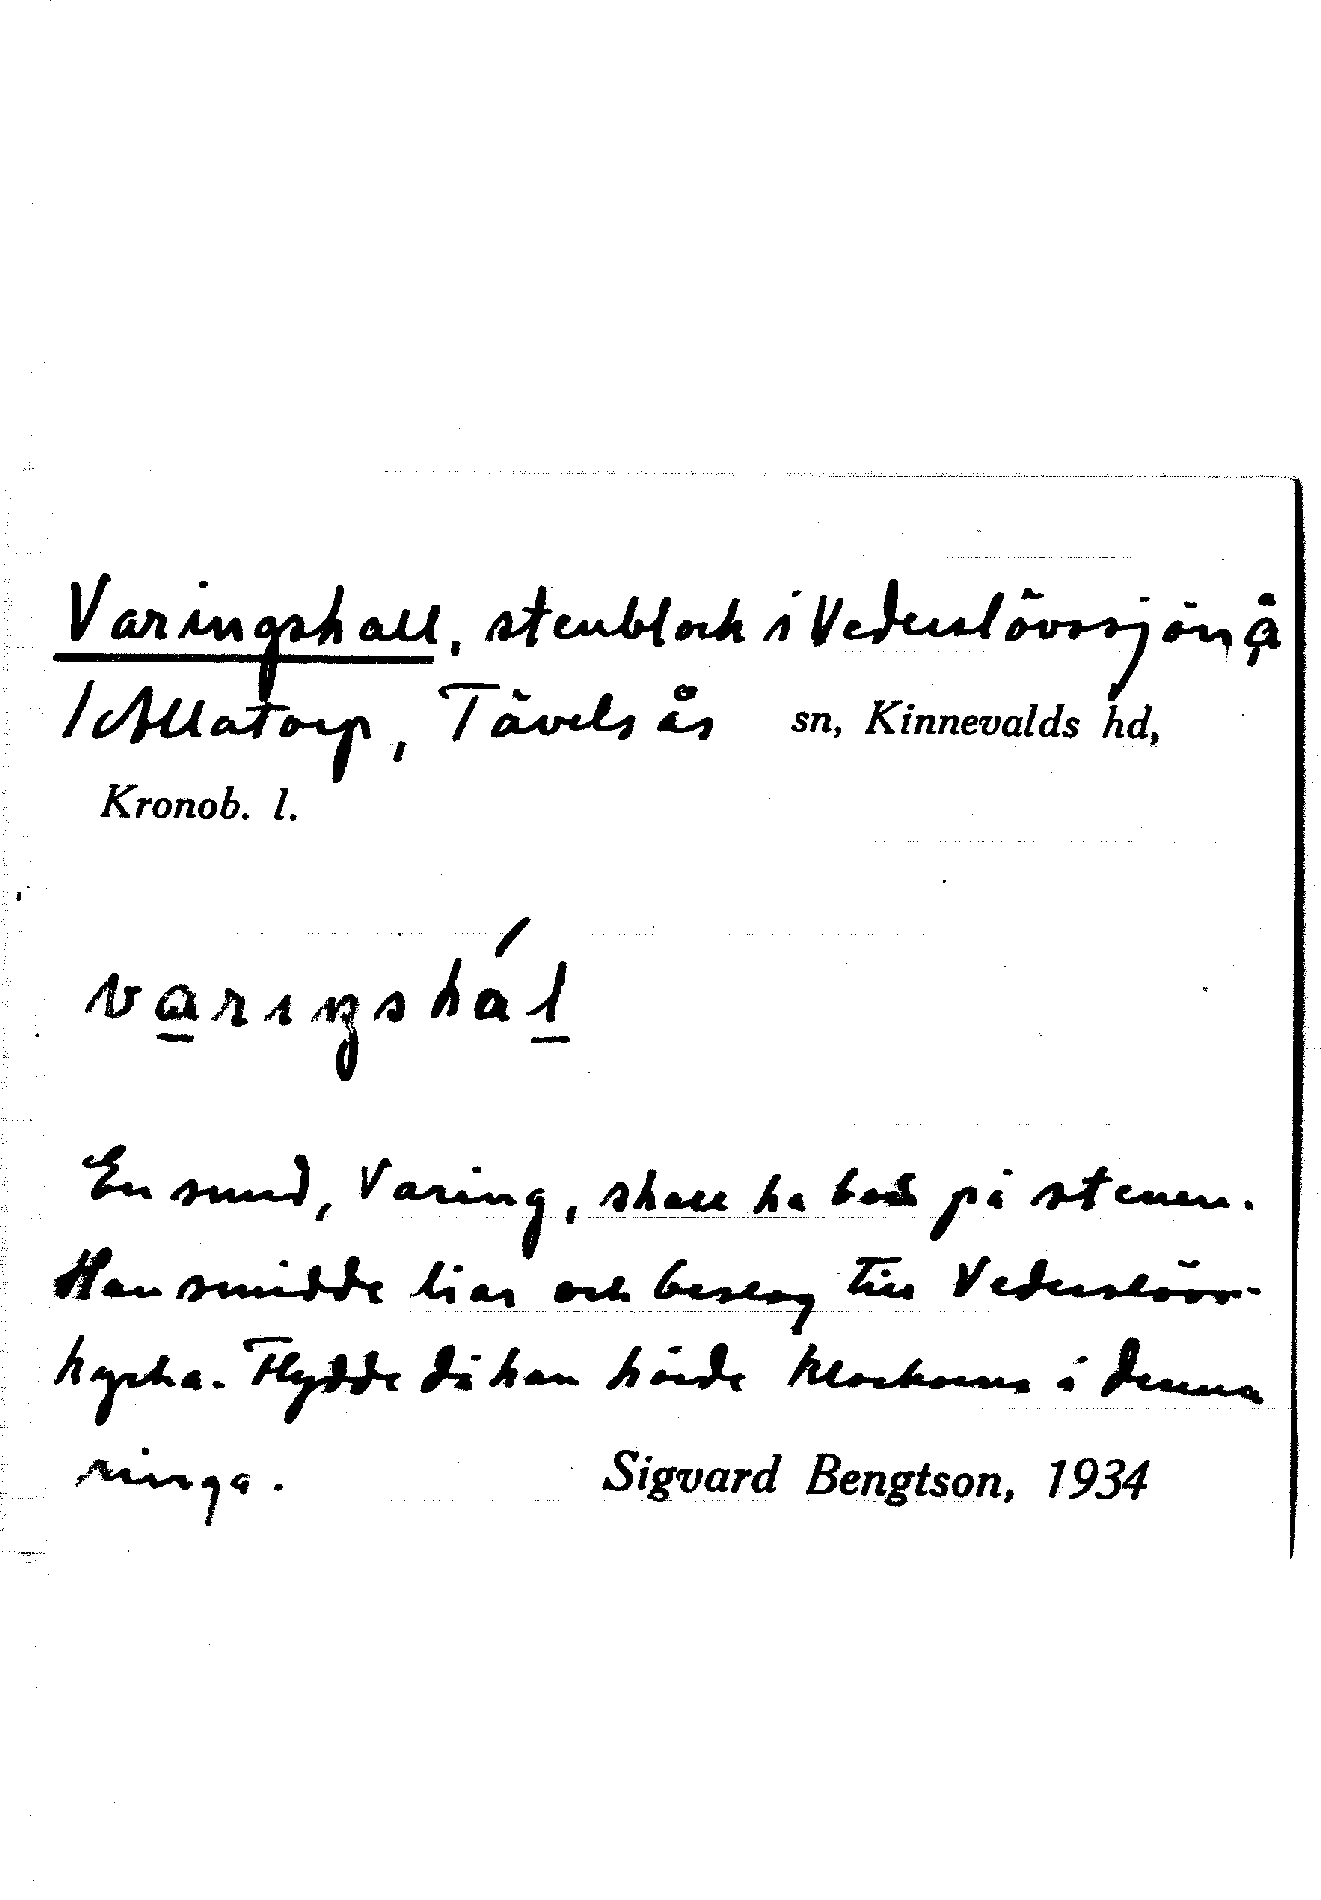 Varingshall, stenblock i Vederslövssjön å
/ Allatorp, Tävelsås sn, Kinnevalds hd,
Kronob. l.
varıŋshál
En smed, Varing, skall ha bott på stenen.
Han smidde liar och beslag till Vederslövs-
kyrka. Flydde då han hörde klockorna i denna
ringa. Sigvard Bengtson, 1934